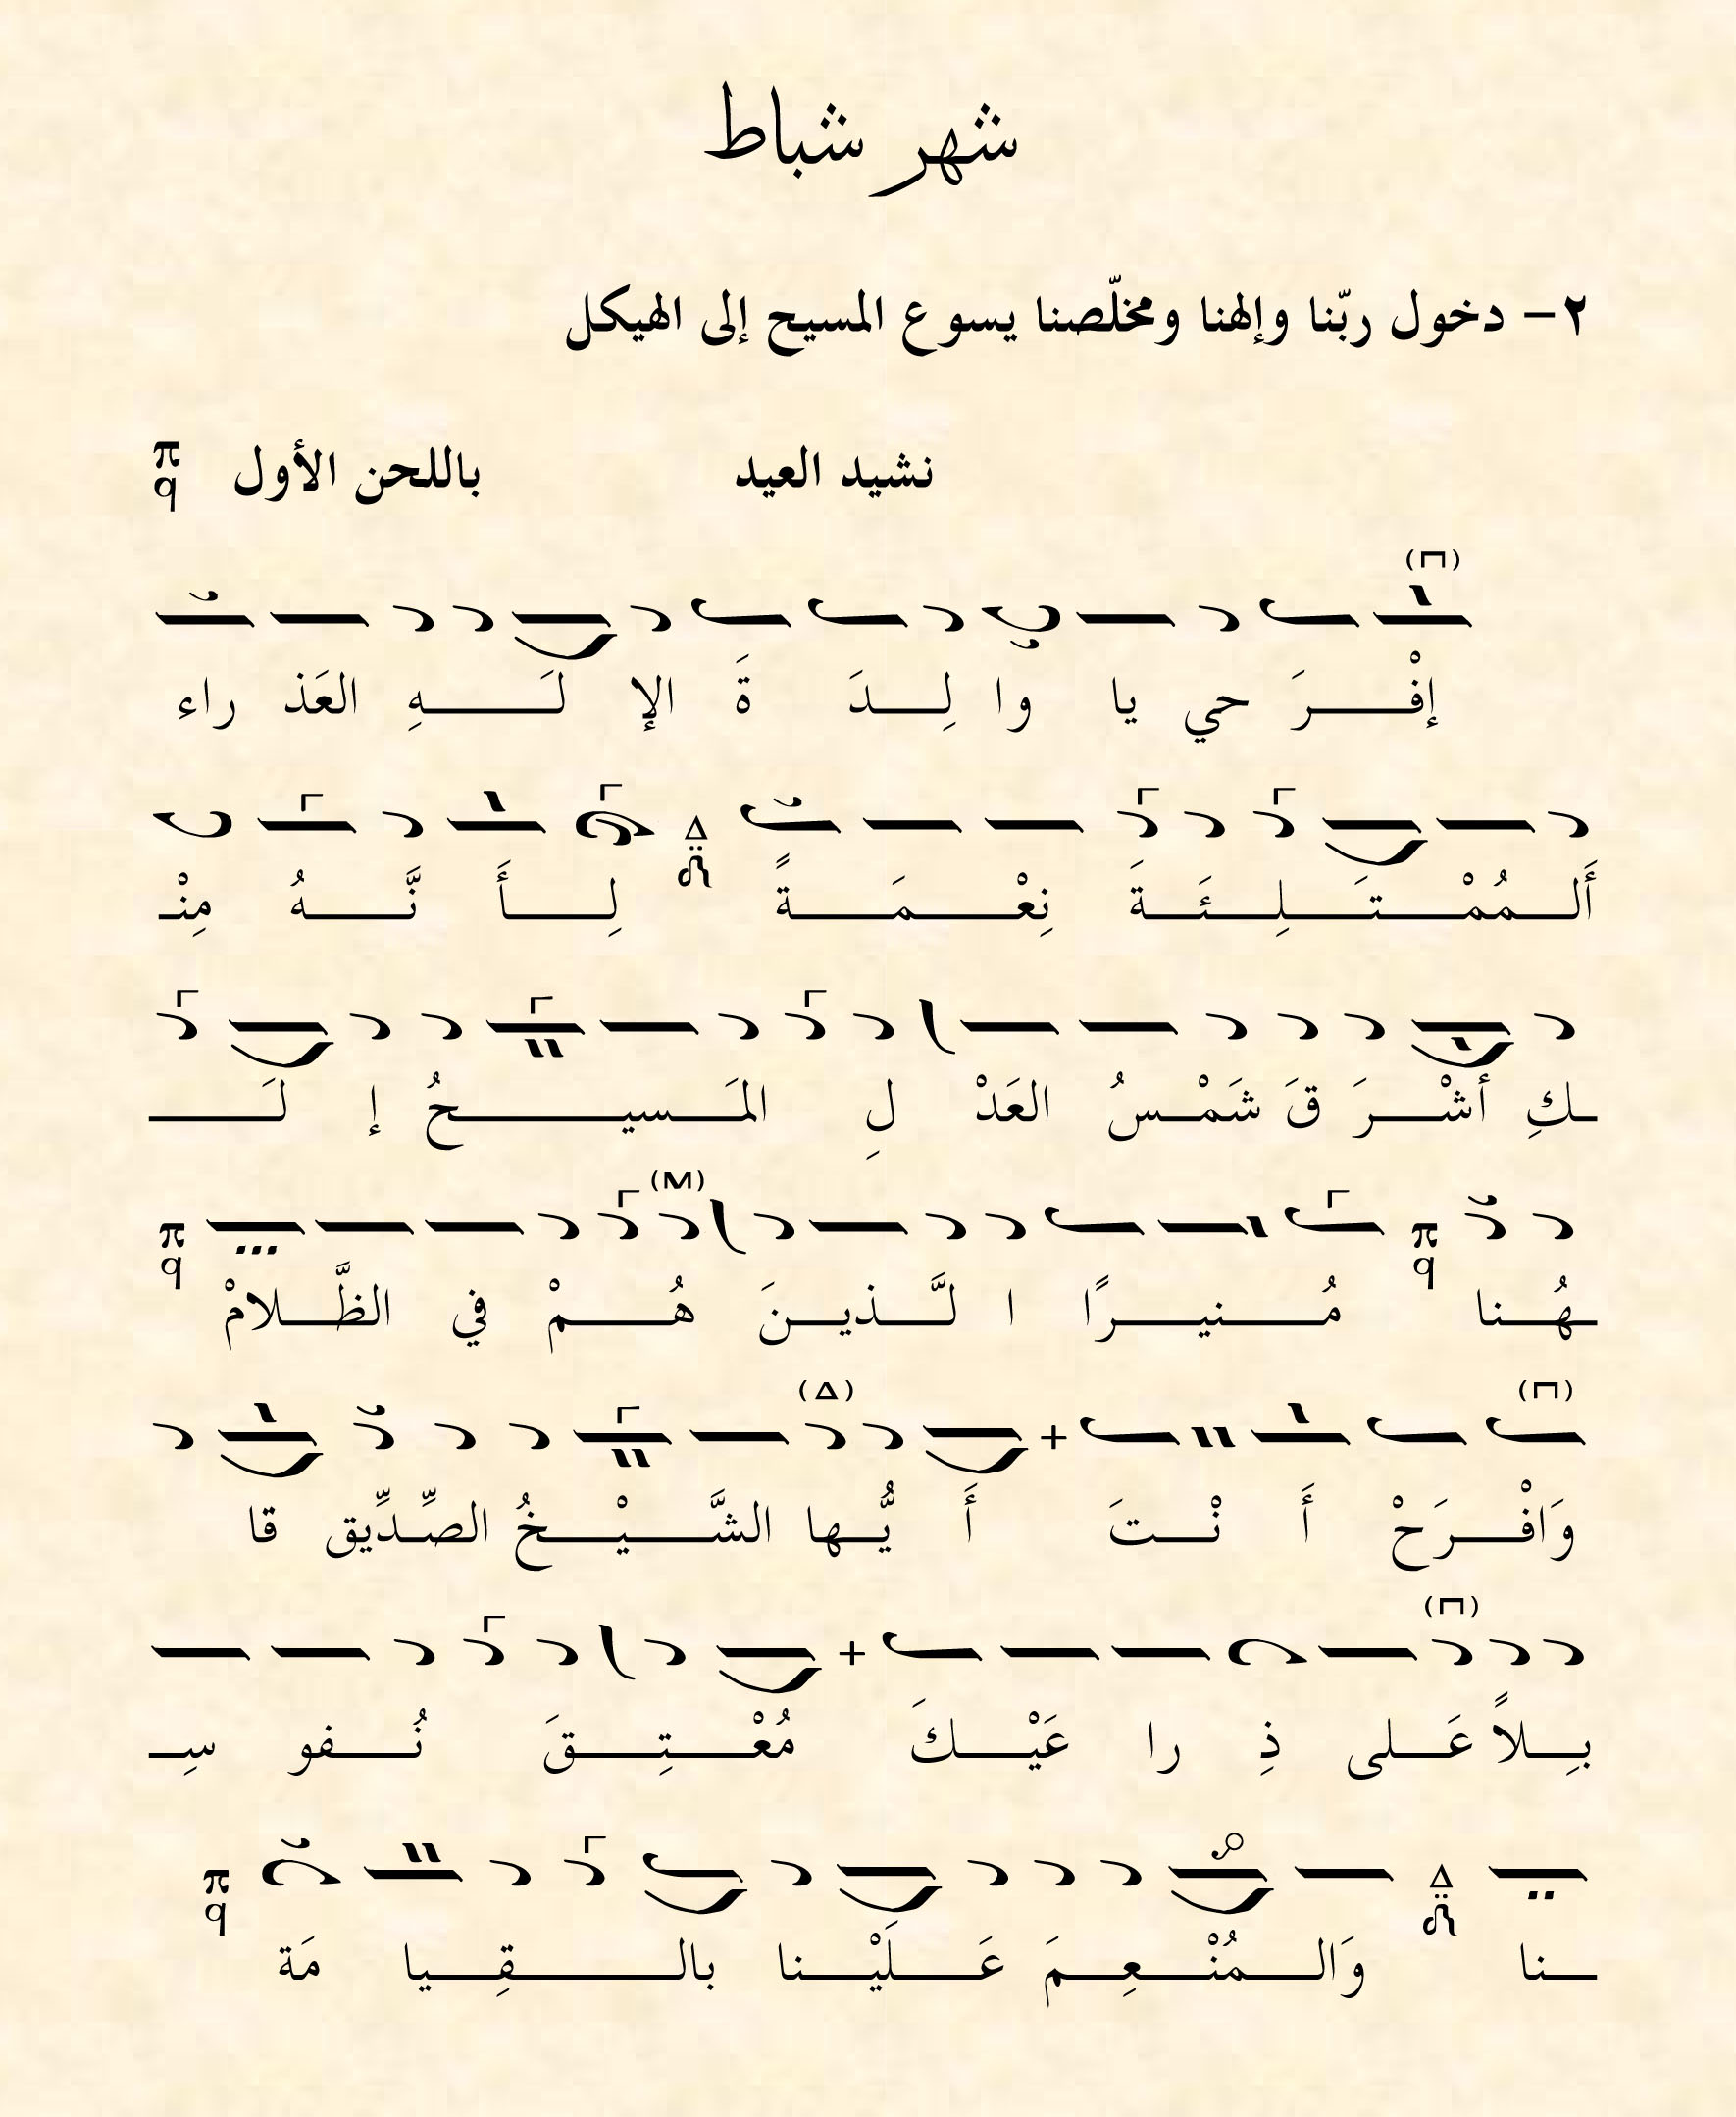 شهر شباط
٢- دخول ربّنا وإلهنا ومخلّصنا يسوع المسيح إلى الهيكل
نشيد العيد باللحن الأول π q
(Π)
إفْـــرَ حي يا وا لِـــدَ ةَ الإ لَـــهِ العَذ راء
أَلـــمُمْـــتَـــلِـــئَـــةَ نِعْـــمَـــةً لِـــأَ نَّـــهُ مِنْـ
ـكِ أشْـــرَ قَ شَمْـــسُ العَدْ لِ المَـــسيـــحُ إ لَـــ
(M)
ـهُـــنا π q مُـــنيـــرًا ا لَّـــذيـــنَ هُـــمْ في الظَّـــلامْ π q
(Π) (Δ)
وَافْـــرَحْ أَ نْـــتَ أَ يُّـــها الشَّـــيْـــخُ الصِّـــدِّيق قا
(Π)
بِـــلاً عَـــلى ذِ را عَيْـــكَ مُعْـــتِـــقَ نُـــفو سِـــ
ـــنا وَالـــمُنْـــعِـــمَ عَـــلَيْـــنا بالـــقِـــيا مَة π q